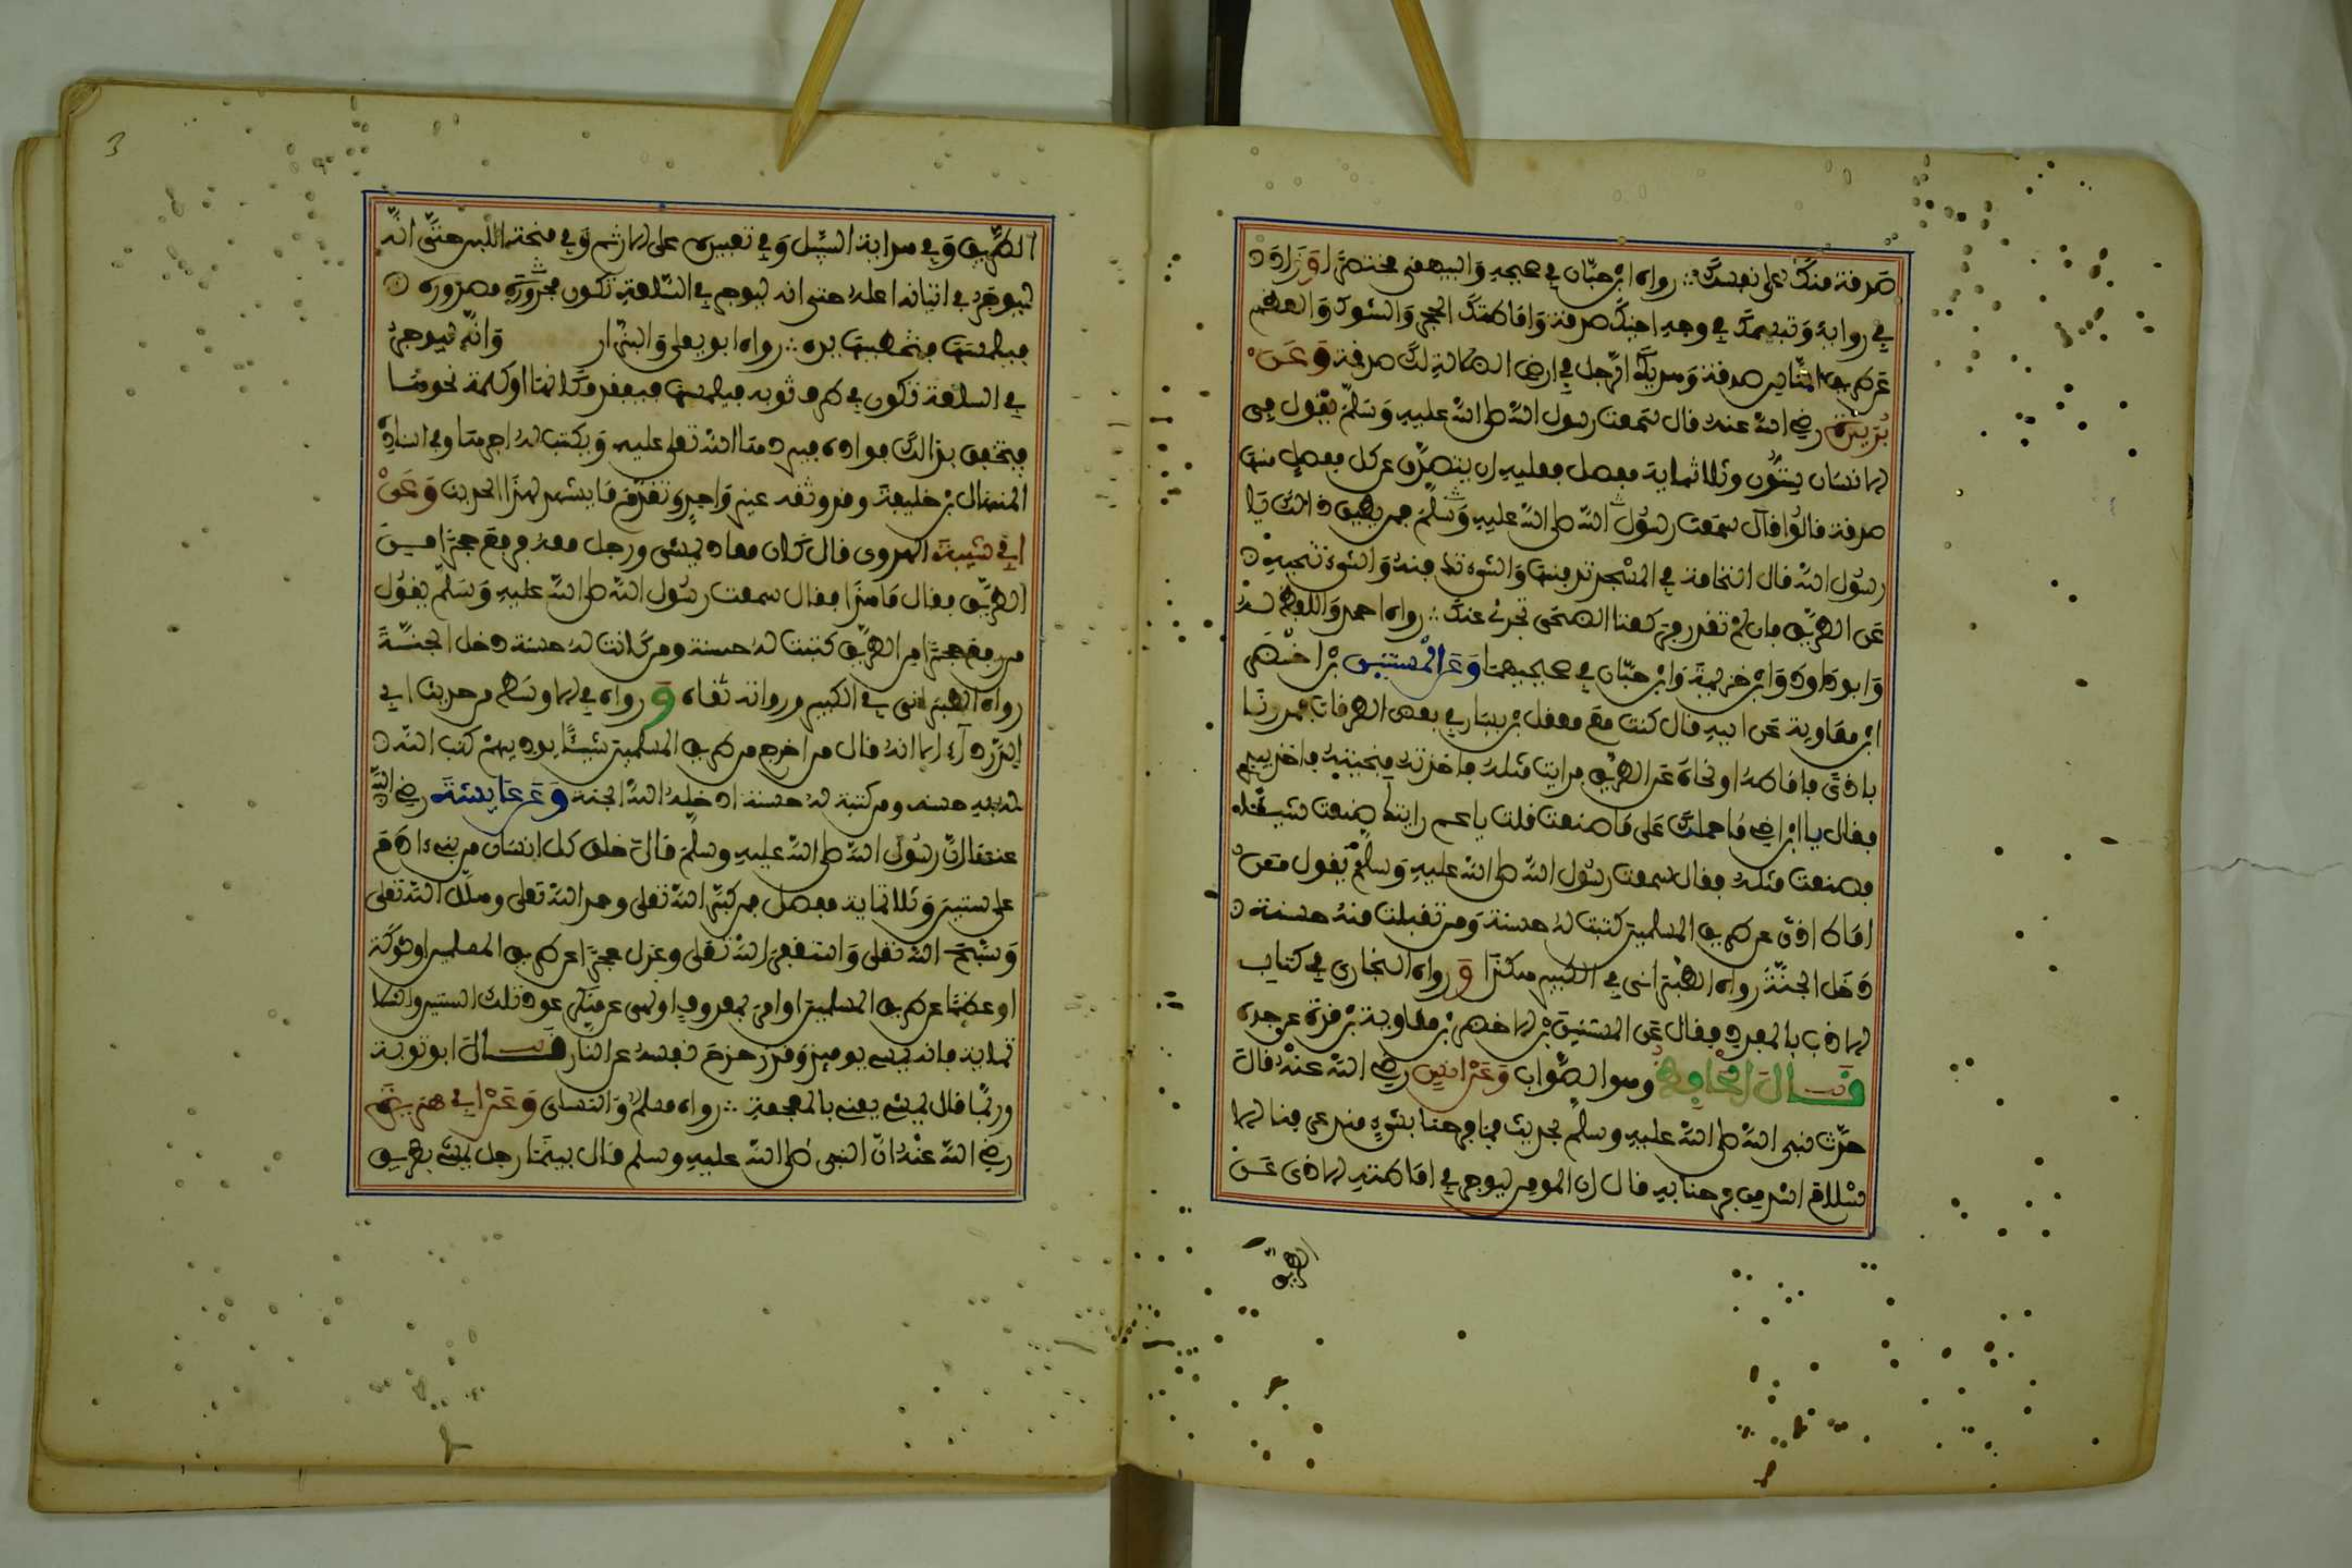 صَدقة منكَ على نفسكَ ∴ رواه ابن حبّان في صحيحه وَالبيهقي مختصَرًا وَزَادَ
في رواية وَتبسمكَ في وجه اخيكَ صدقة وَاماطتكَ الحجر وَالشوكَ وَالعظم
عَن طريق النّاس صدقة وَهديكَ الرّجل في ارض الضالة لكَ صدقة وَعَنْ
بُرَيدة رضي الله عنه قال سَمعت رسول الله صلى الله عليه وَسَلّم يقول في
الانسان ستُّون وثلاثماية مفصل فعليه ان يتصدَّق عن كل مفصل منها
صدقة قالُوا فمن يطيق ذالك يا
رسُول الله قال النخامة في المسْجد تدفنها وَالشيء تنحيه
عَن الطريق فان لمْ تقدر فركعتا الضحَى تجزئ عنكَ ∴ رواه احمد وَاللفظ لهُ
وَابو دَاود وَابن خزيمة وَابن حبّان في صحيحيهما وَعَن الْمستنير بن اخضَر
ابن معَاوية عَن ابيه قال كنت معَ معقل بن يسَار في بعض الطرقات فمررنَا
باذًى فاماطهُ او نحاهُ عَن الطريق فرايت مثلهُ فاخذتهُ فنحيتهُ فاخذ بيدي
فقال يا ابن اخي مَا حملكَ عَلى مَا صنعت قلت يا عم رايتكَ صنعت شيئًا
فصنعت مثلهُ فقال سمعت رسُول الله صلى الله عليه وَسلمْ يَقول مَن
امَاط اذًى عن طريق المسلمين كتبت لهُ حسنة وَمن تقبلت منهُ حسنة
دَخل الجنّة رواه الطبَراني في الكبير هكذَا وَ رواه البخاري في كتاب
الادب المفرد فقال عَن المستنير بن الاخضر بن معاوية بن قرة عن جده
قــــال الحافظ وهو الصَّواب وَعَنْ انس رضي الله عنهُ قالَ
حدّث نبي الله صلى الله عليه وسلم بحديث فما فرحنا بشيء منذ عرفنا الا
سْلام اشد من فرحنا به قال ان المومن ليوجر في امَاطته الاذى عَن
الطريق
3
الطّريق وَفي هداية السَّبيل وَفي تعبيره على الارثم وَفي منحة اللبن حتَّى انّه
ليوجَر في اتيانه اهله حتى انه ليوجر في السّلعة تكون مصرورة
فيلمسها فتخطيها يده ∴ رواه ابو يعلى وَالبزّار وَانّه ليوجر
في السلعة تكون في طرف ثوبه فيلمسها فيفقد مكانها او كلمة نحوها
فيخفق بذالكَ فواده فيردهَا الله تعلى عليه وَيكتب لهُ اجرهَا وفي اسناده
المنهال بن خليفة وقد وثقه غير وَاحد وَتقدّم مَا يشهد لهذَا الحديث وَعَنْ
ابي شيبة الهروي قال كَان معاذ يمشي ورجل معهُ فرفع حجرًا مـن
الطريق فقال مَا هذَا فقال سمعت رسُول الله صلى الله عليه وَسَلّم يقُول
من رفع حجرًا من الطريق كتبت لهُ حسنة ومن كَانت لهُ حسنة دخل الجنّـةَ
رواه الطبَراني في الكبير ورواته ثقاه وَ رواه في الاوسط من حديث ابي
الدَّرداء الا انهُ قال من اخرج من طريق المسلمين شيئًا يوذيهمْ كتب الله
لهُ به حسنه ومن كتبة لهُ حسنة ادخلهُ الله الجنة وَعَن عَايشَة رضي الله
عنها انّ رسُولَ الله صلى الله عليه وسلم قالَ خلق كل انسَان من بني ادَمَ
على ستين وَثلاثماية مفصل فمن كبّر الله تعلى وحمد الله تعلى وهلّل الله تعلى
وَسَبّح الله تعلى وَاستغفرَ الله تعَلى وعزل حجرًا عن طريق المسلمين او شوكَة
او عظمًا عن طريق المسلمين او امر بمعروف او نهى عن منكر عدد تلك الستين والثلا
ثماية فانه يمسي يوميذ وَقد زحزحَ نفسهُ عن النار قــــالَ ابو توبة
وربّمَا قال يمشي يعني بالمعجمة ∴ رواه مسلم وَالنسَاي وَعَنْ ابي هريرَة
رضي الله عَنْهُ انّ النبي صلى الله عليه وسلم قال بينَمَا رجل يمشي بطريق